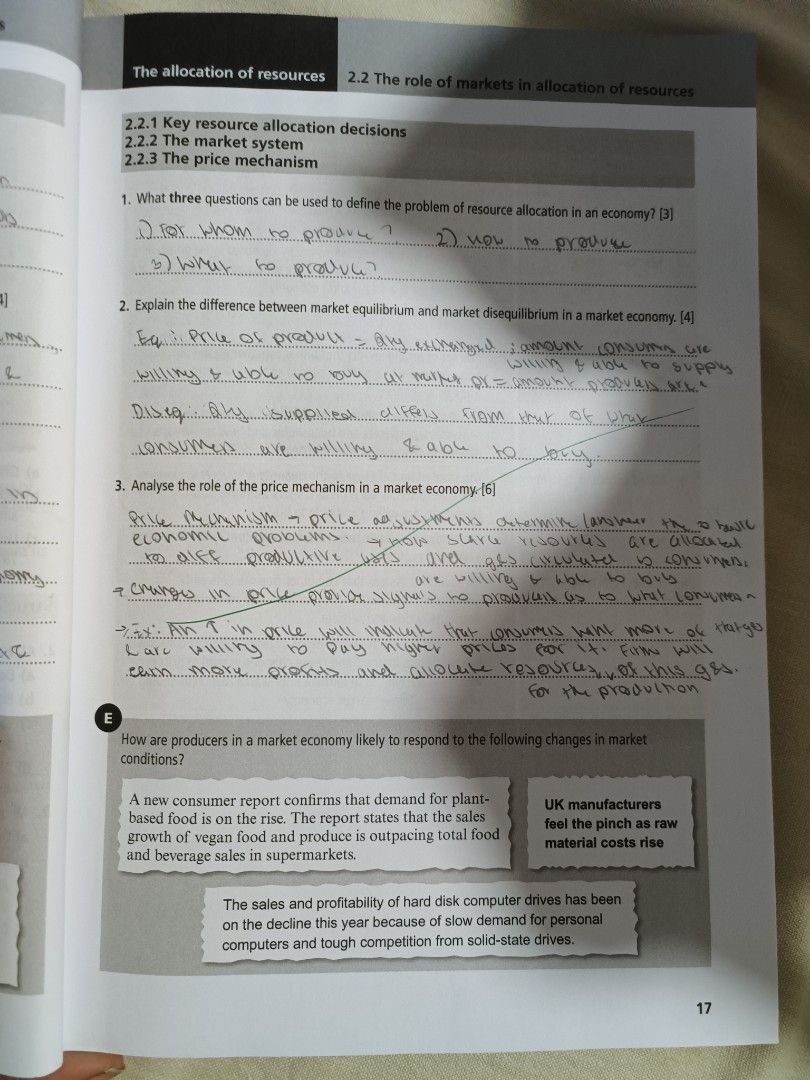 The allocation of resources
2.2 The role of markets in allocation of resources
2.2.1 Key resource allocation decisions
2.2.2 The market system
2.2.3 The price mechanism
1. What three questions can be used to define the problem of resource allocation in an economy? [3]
1) For whom to produce? 2) how to produce
3) What to produce?
2. Explain the difference between market equilibrium and market disequilibrium in a market economy. [4]
Eq: Price of product = Qty exchanged ; amount consumers are
willing & able to supply
willing & able to buy at market pr = amount producers are
Diseq: Qty supplied differs from that of what
consumers are willing & able to buy.
3. Analyse the role of the price mechanism in a market economy. [6]
Price Mechanism → price adjustments determine/answer the 3 basic
economic problems. → how scarce resources are allocated
to diff productive uses and g&s circulated to consumers.
are willing & able to buy
→ Changes in price provide signals to producers as to what consumers
→ Ex: An ↑ in price will indicate that consumers want more of that g&s
& are willing to pay higher prices for it. Firms will
earn more profits and allocate resources of this g&s.
for the production
E
How are producers in a market economy likely to respond to the following changes in market
conditions?
A new consumer report confirms that demand for plant-
based food is on the rise. The report states that the sales
growth of vegan food and produce is outpacing total food
and beverage sales in supermarkets.
UK manufacturers
feel the pinch as raw
material costs rise
The sales and profitability of hard disk computer drives has been
on the decline this year because of slow demand for personal
computers and tough competition from solid-state drives.
17